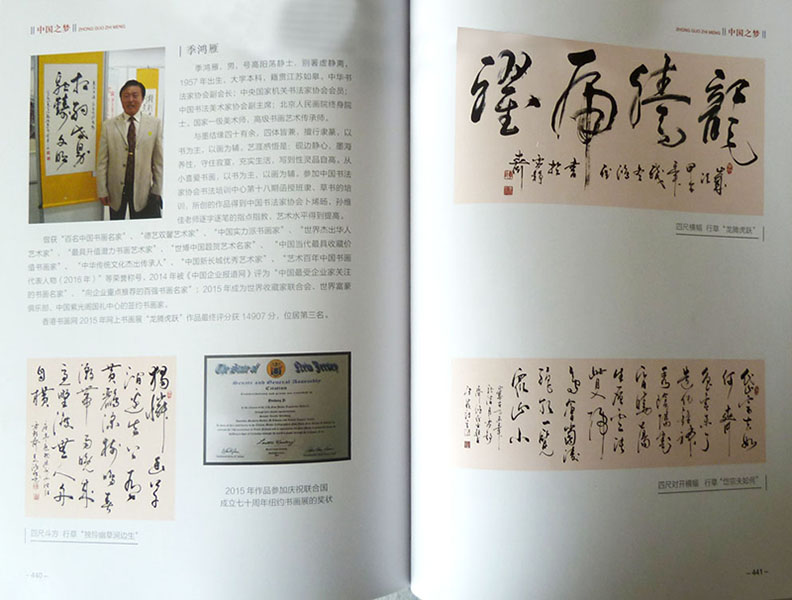 中国之梦 ZHONG GUO ZHI MENG
季鸿雁
季鸿雁，男，号高阳荡静士，别署虚静斋，
1957年出生，大学本科，籍贯江苏如皋，中华书
法家协会副会长；中央国家机关书法家协会会员；
中国书法美术家协会副主席；北京人民画院终身院
士，国家一级美术师，高级书画艺术传承师。
与墨结缘四十有余，四体皆兼，擅行隶篆，以
书为主，以画为辅，艺涯感悟是：砚边静心，墨海
养性，守住寂寞，充实生活，写到性灵品自高。从
小喜爱书画，以书为主，以画为辅，参加中国书法
家协会书法培训中心第十八期函授班隶、草书的培
训，所创的作品得到中国书法家协会卜烯旸、孙维
佳老师逐字逐笔的指点阻教，艺术水平得到提高。
曾获“百名中国书画名家”、“德艺双馨艺术家”、“中国实力派书画家”、“世界杰出华人
艺术家”、“最具升值潜力书画艺术家”、“世博中国题贺艺术名家”、“中国当代最具收藏价
值书画家”、“中华传统文化杰出传承人”、“中国新长城优秀艺术家”、“艺术百年中国书画
代表人物（2016年）”等荣誉称号。2014年被《中国企业报道网》评为“中国最受企业家关注
的书画名家”、“向企业重点推荐的百强书画名家”；2015年成为世界收藏家联合会、世界富豪
俱乐部、中国紫光阁国礼中心的签约书画家。
香港书画网2015年网上书画展“龙腾虎跃”作品最终评分获14907分，位居第三名。
独憐幽草
涧边生上有
黄鹂深树鸣春
潮带雨晚来
急野渡无人舟
自横
The State of New Jersey
Senate and General Assembly
Citation
四尺斗方 行草“独怜幽草涧边生”
2015年作品参加庆祝联合国
成立七十周年纽约书画展的奖状
-440-
ZHONG GUO ZHI MENG 中国之梦
龍騰虎躍
四尺横幅 行草“龙腾虎跃”
岱宗夫如
何齊
魯青未了
造化鍾神
秀陰陽割
昏曉蕩胸
生層雲決
眥入歸
鳥會當凌
絶頂一覽
衆山小
四尺对开横幅 行草“岱宗夫如何”
-441-